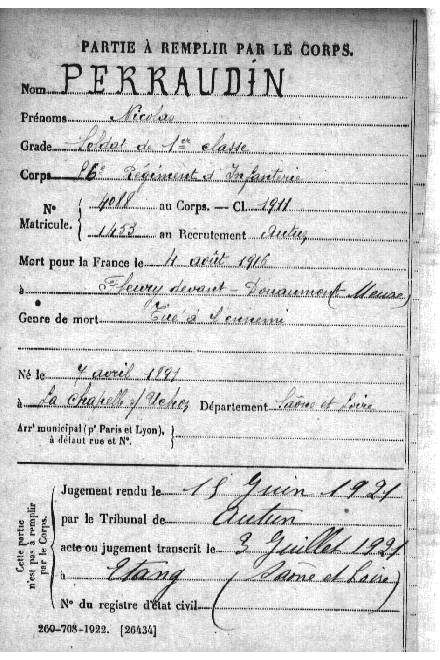 PARTIE À REMPLIR PAR LE CORPS.
Nom PERRAUDIN
Prénoms Nicolas
Grade Soldat de 1ère classe
Corps 26e Régiment d'Infanterie
N° Matricule. { 4088 au Corps. — Cl. 1911
1453 au Recrutement Autun
Mort pour la France le 4 août 1916
à Fleury devant-Douaumont (Meuse)
Genre de mort Tué à l'ennemi
Né le 7 avril 1891
à La Chapelle s/ Département Saône et Loire
Arrt municipal (pr Paris et Lyon), à défaut rue et N°. }
Cette partie n'est pas à remplir par le Corps.
Jugement rendu le 15 Juin 1921
par le Tribunal de Autun
acte ou jugement transcrit le 3 Juillet 1921
à Etang (Saône et Loire)
N° du registre d'état civil
260-708-1922. [26434]